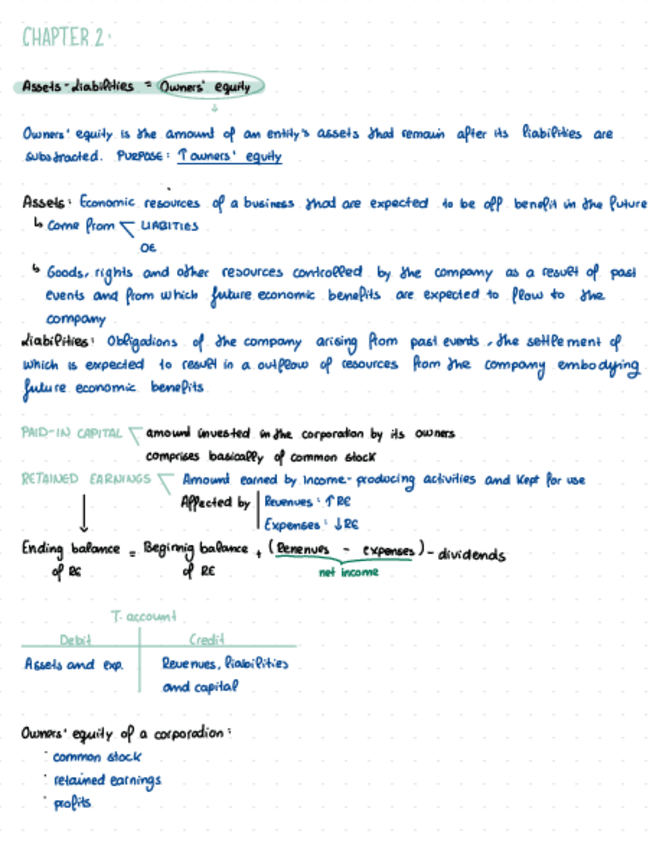 CHAPTER 2:
Assets - Liabilities = Owners' equity
Owners' equity is the amount of an entity's assets that remain after its liabilities are
substracted. PURPOSE: ↑ owners' equity
Assets: Economic resources of a business that are expected to be off benefit in the future
↳ Come from < LIABITIES
OE
↳ Goods, rights and other resources controlled by the company as a result of past
events and from which future economic benefits are expected to flow to the
company
Liabilities: Obligations of the company arising from past events, the settlement of
which is expected to result in a outflow of resources from the company embodying
future economic benefits
PAID-IN CAPITAL < amount invested in the corporation by its owners
comprises basically of common stock
RETAINED EARNINGS < Amount earned by Income-producing activities and kept for use
Affected by | Revenues: ↑ RE
Expenses: ↓ RE
↓
Ending balance = Beginnig balance + (Renenues - expenses) - dividends
of RE of RE net income
T. account
Debit Credit
Assets and exp. Revenues, liabilities
and capital
Owners' equity of a corporation:
· common stock
· retained earnings
· profits